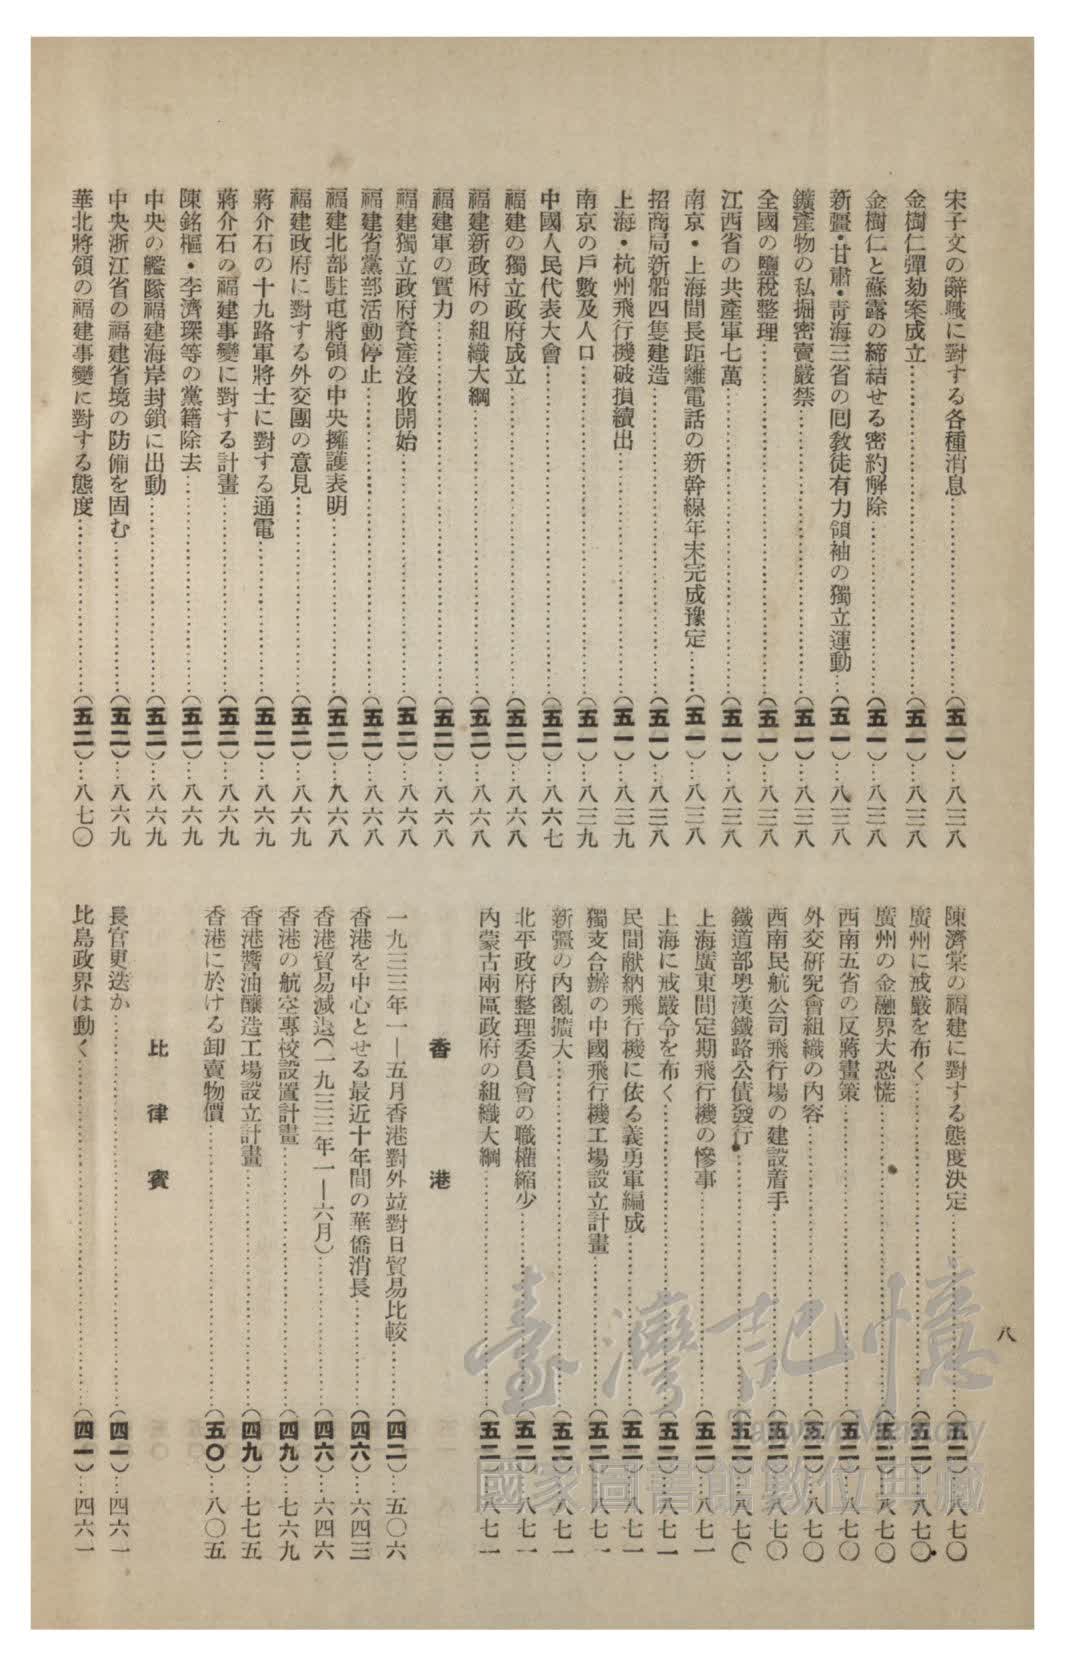 宋子文の辭職に對する各種消息…(五一)…八三八
金樹仁彈劾案成立…(五一)…八三八
金樹仁と蘇露の締結せる密約解除…(五一)…八三八
新疆・甘肅・靑海三省の囘敎徒有力領袖の獨立運動…(五一)…八三八
鑛產物の私掘密賣嚴禁…(五一)…八三八
全國の鹽稅整理…(五一)…八三八
江西省の共產軍七萬…(五一)…八三八
南京・上海間長距離電話の新幹線年末完成豫定…(五一)…八三八
招商局新船四隻建造…(五一)…八三八
上海・杭州飛行機破損續出…(五一)…八三九
南京の戶數及人口…(五一)…八三九
中國人民代表大會…(五二)…八六七
福建の獨立政府成立…(五二)…八六八
福建新政府の組織大綱…(五二)…八六八
福建軍の實力…(五二)…八六八
福建獨立政府資產沒收開始…(五二)…八六八
福建省黨部活動停止…(五二)…八六八
福建北部駐屯將領の中央擁護表明…(五二)…八六八
福建政府に對する外交團の意見…(五二)…八六九
蔣介石の十九路軍將士に對する通電…(五二)…八六九
蔣介石の福建事變に對する計畫…(五二)…八六九
陳銘樞・李濟琛等の黨籍除去…(五二)…八六九
中央の艦隊福建海岸封鎖に出動…(五二)…八六九
中央浙江省の福建省境の防備を固む…(五二)…八六九
華北將領の福建事變に對する態度…(五二)…八七〇
陳濟棠の福建に對する態度決定…(五二)…八七〇
廣州に戒嚴を布く…(五二)…八七〇
廣州の金融界大恐慌…(五二)…八七〇
西南五省の反蔣畫策…(五二)…八七〇
外交硏究會組織の內容…(五二)…八七〇
西南民航公司飛行場の建設着手…(五二)…八七〇
鐵道部粤漢鐵路公債發行…(五二)…八七〇
上海廣東間定期飛行機の慘事…(五二)…八七一
上海に戒嚴令を布く…(五二)…八七一
民間献納飛行機に依る義勇軍編成…(五二)…八七一
獨支合辦の中國飛行機工場設立計畫…(五二)…八七一
新疆の內亂擴大…(五二)…八七一
北平政府整理委員會の職權縮少…(五二)…八七一
內蒙古兩區政府の組織大綱…(五二)…八七一
香港
一九三三年一—五月香港對外竝對日貿易比較…(四二)…五〇六
香港を中心とせる最近十年間の華僑消長…(四六)…六四三
香港貿易減退(一九三三年一—六月)…(四六)…六四六
香港の航空專校設置計畫…(四九)…七六九
香港醬油釀造工場設立計畫…(四九)…七七五
香港に於ける卸賣物價…(五〇)…八〇五
比律賓
長官更迭か…(四一)…四六一
比島政界は動く…(四一)…四六一
八
臺灣記憶
Taiwan Memory
國家圖書館數位典藏